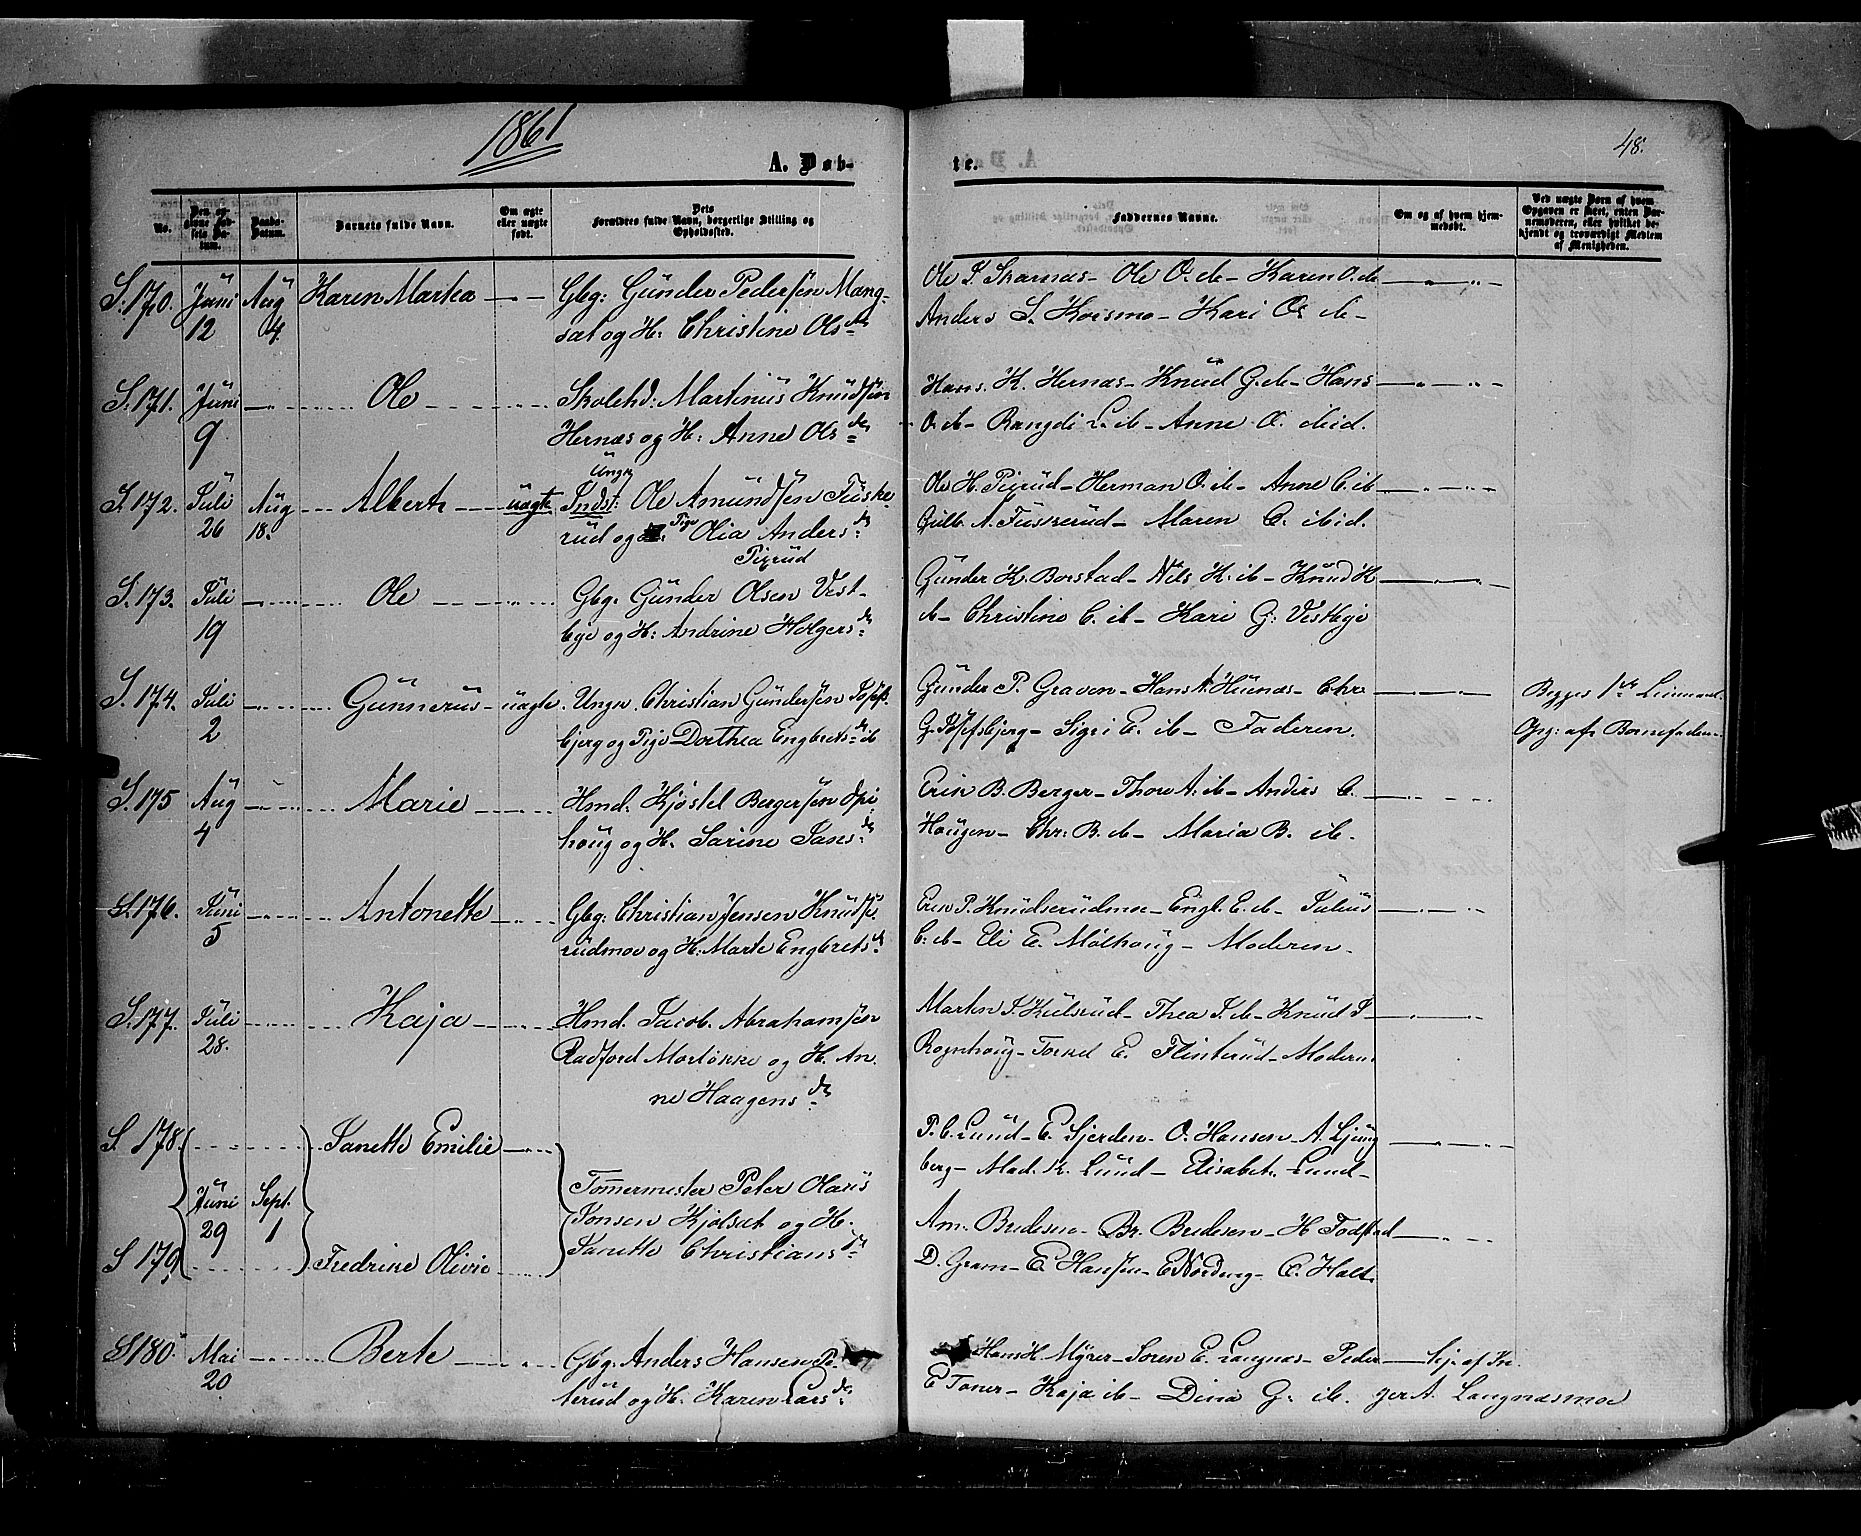 1861
48.
A. Døb-
te.
No.
Den op-
givne Fød-
sels Da-
tum.
Daabs-
Datum.
Barnets fulde Navn.
Om ægte
eller uægte
født.
Dets
Forældres fulde Navn, borgerlige Stilling og
Opholdssted.
Faddernes Navne.
Om og af hvem hjem-
medøbt.
Ved uægte Børn af hvem
Opgaven er skeet, enten Bar-
nemoderen, eller hvilket be-
kjendt og troværdigt Medlem
af Menigheden.
S. 170. Juni 12 Aug 4. Karen Martea
Gbg: Gunder Pedersen Mang-
sæt og H: Christine Olsdr
Ole S. Skarnæs - Ole O. ib - Karen O. ib
Anders S. Korsmo - Kari O. ib -
S. 171. Juni 9 Ole
Skolehd: Martinus Knudsen
Hernæs og H: Anne Olsdr
Hans. K. Hernæs - Knud G. ib - Hans
O. ib - Rangdi L. ib - Anne O. ibid.
S. 172. Juli 26 Aug 18. Alberth uægte
Ungk
Indst: Ole Amundsen Fuske
rud og Pige Olia Andersdr
Pixrud
Ole H. Pixrud - Herman O. ib - Anne C. ib
Gulb. A. Fuskerud - Maren C. ibid.
S. 173. Juli 19 Ole
Gbg. Gunder Olsen Vest-
bye og H: Andrine Holgersdr
Gunder K. Borstad - Nils K. ib - Knud K
ib - Christine C. ib - Kari G. Vestbye
S. 174. Juli 2 Gunnerus uægte.
Ungk. Christian Gundersen
bjerg og Pige Dorthea Engbretsdr ib
Gunder P. Graven - Hans A. Huunæs - Chr.
G. - Sigri E. ib - Faderen.
Begges 1ste Leiermaal
Opg: af Barnefaderen
S. 175 Aug 4 Marie
Hmd. Kjøstel Bergersen Opi
houg og H. Sarine Jansdr
Erik B. Berger - Thore A. ib - Anders C.
Haugen - Chr: B. ib - Maria B. ib.
S. 176. Juni 5 Antonette
Gbg: Christian Jensen Knudse
rudmoe og H: Marte Engbretsdr
Erik P. Knudserudmoe - Engl. E. ib - Julius
C. ib - Eli E. Mølhoug - Moderen.
S. 177. Juli 28. Kaja
Hmd. Jacob Abrahamsen
Radford Mortøkke og H. An
ne Haagensdr
Marten J. Kulsrud - Thea J. ib - Knud S
Rognhoug - Torkel E. Flinterud - Moderen
S. 178. Janette Emilie
Juni 29 Sept. 1
Tømermester Peter Olaus
Jonsen Kjølsæt og H.
Janette Christiansdr
P. C. Lund - E. Gjerden - O. Hansen - A. Ljung
berg - Mad. K. Lund - Elisabet Lund -
S 179. Fredrine Olivie
Am. Bredesen - Br. Bredesen - H Fodstad
D. Gram - E. Hansen - E Nordeng - C. Holt.
S 180. Mai 20 Berte
Gbg. Anders Hansen Pe-
terud og H. Karen Larsdr
Hans H Myrer - Soren E. Langnæs - Peder
E Toner - Kaja ib - Dina G. ib.
hj. af In
ger A. Langnæsmoe